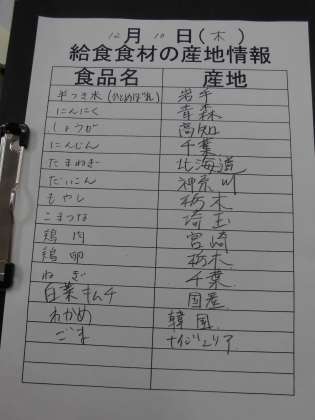 12月10日(木)
給食食材の産地情報
食品名 産地
半つき米(ひとめぼれ) 岩手
にんにく 青森
しょうが 高知
にんじん 千葉
たまねぎ 北海道
だいこん 神奈川
もやし 栃木
こまつな 埼玉
鶏肉 宮崎
鶏卵 栃木
ねぎ 千葉
白菜キムチ 国産
わかめ 韓国
ごま ナイジェリア